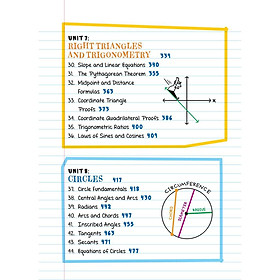 UNIT 7:
RIGHT TRIANGLES
AND TRIGONOMETRY 339
30. Slope and Linear Equations 340
31. The Pythagorean Theorem 355
32. Midpoint and Distance
Formulas 363
33. Coordinate Triangle
Proofs 373
34. Coordinate Quadrilateral Proofs 386
35. Trigonometric Ratios 400
36. Laws of Sines and Cosines 409
x
UNIT 8:
CIRCLES 417
37. Circle Fundamentals 418
38. Central Angles and Arcs 430
39. Radians 442
40. Arcs and Chords 447
41. Inscribed Angles 455
42. Tangents 463
43. Secants 471
44. Equations of Circles 477
CIRCUMFERENCE
CHORD
DIAMETER
RADIUS